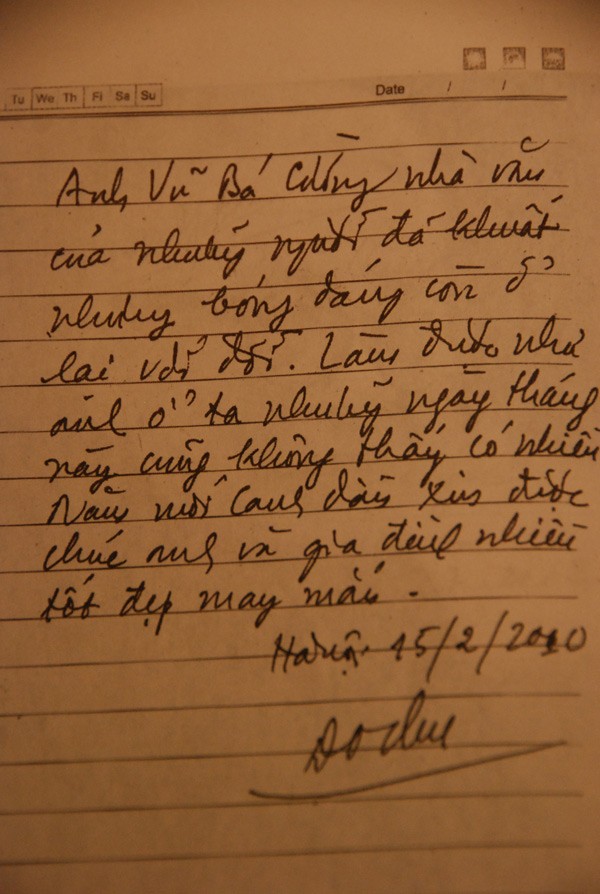 Tu We Th Fi Sa Su
Date / /
Anh Vũ Bá Cường nhà văn
của những người đã khuất
nhưng bóng dáng còn ở
lại với đời. Làm được như
anh ở ta những ngày tháng
này cũng không thấy có nhiều
Năm mới Canh dần xin được
chúc anh và gia đình nhiều
tốt đẹp may mắn.
Hà nội 15/2/2010
Đỗ Chu